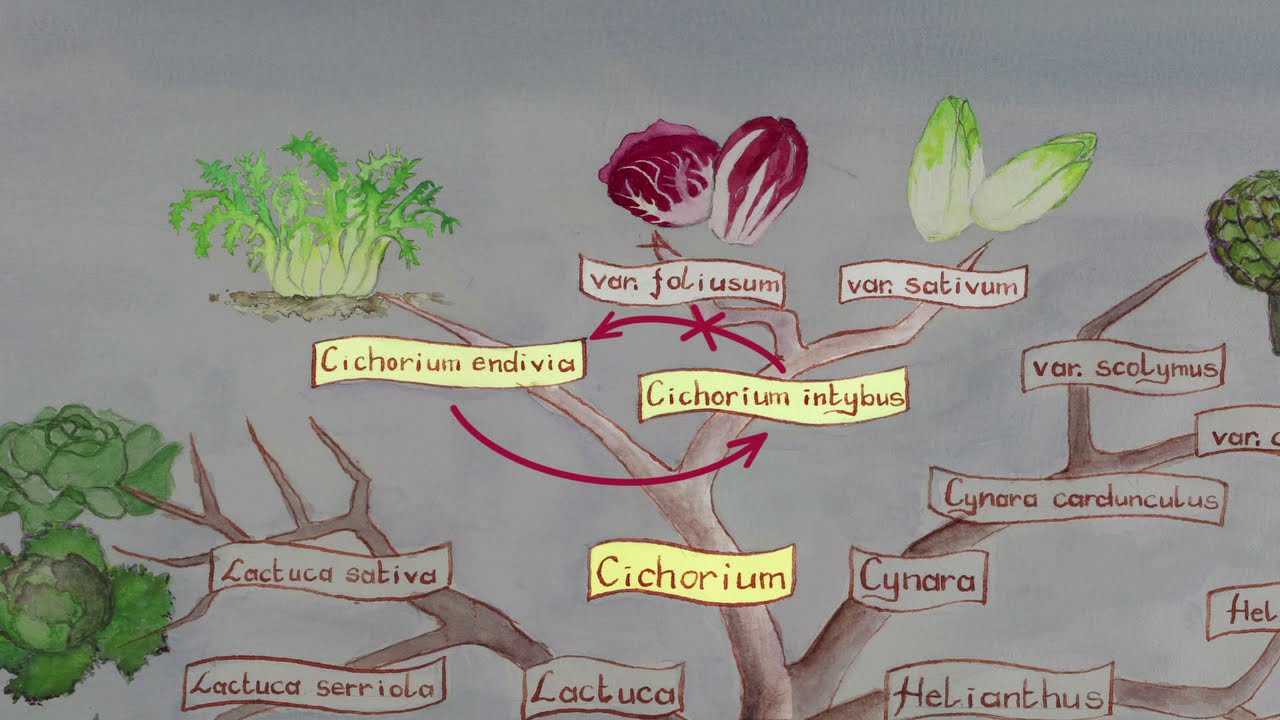 var. foliusum
var. sativum
Cichorium endivia
var. scolymus
Cichorium intybus
var.
Cynara cardunculus
Lactuca sativa
Cichorium
Cynara
Lactuca serriola
Lactuca
Helianthus